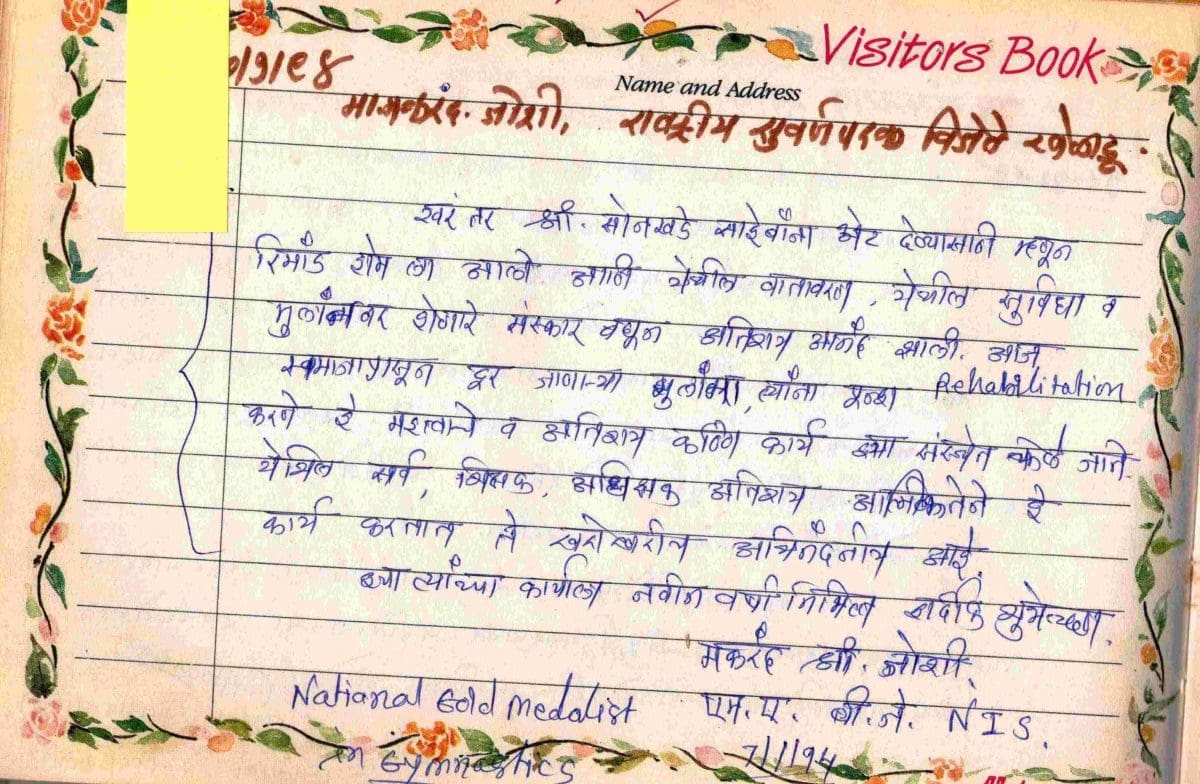 Visitors Book
Name and Address
/१/९४
माजकरंद. जोशी, राष्ट्रीय सुवर्णपदक विजेते खेळाडू.
खरं तर श्री. सोनखडे साहेबांना भेट देण्यासाठी म्हणून
रिमांड होम ला आलो आणि येथील वातावरण, येथील सुविधा व
मुलांवर होणारे संस्कार बघून अतिशय आनंद झाला. आज
समाजापासून दूर जाणाऱ्या मुलांना, त्यांना पुन्हा Rehabilitation
करणे हे महत्वाचे व अतिशय कठिण कार्य ह्या संस्थेत केले जाते.
येथिल सर्व, शिक्षक, अधिक्षक अतिशय आत्मिकतेने हे
कार्य करतात ते खरोखरीच अभिनंदनीय आहे.
ह्या त्यांच्या कार्याला नवीन वर्षा निमित्त हार्दीक शुभेच्छा.
मकरंद श्री. जोशी.
National Gold Medalist एम.ए. बी.जे. NIS.
in Gymnastics 7/1/94